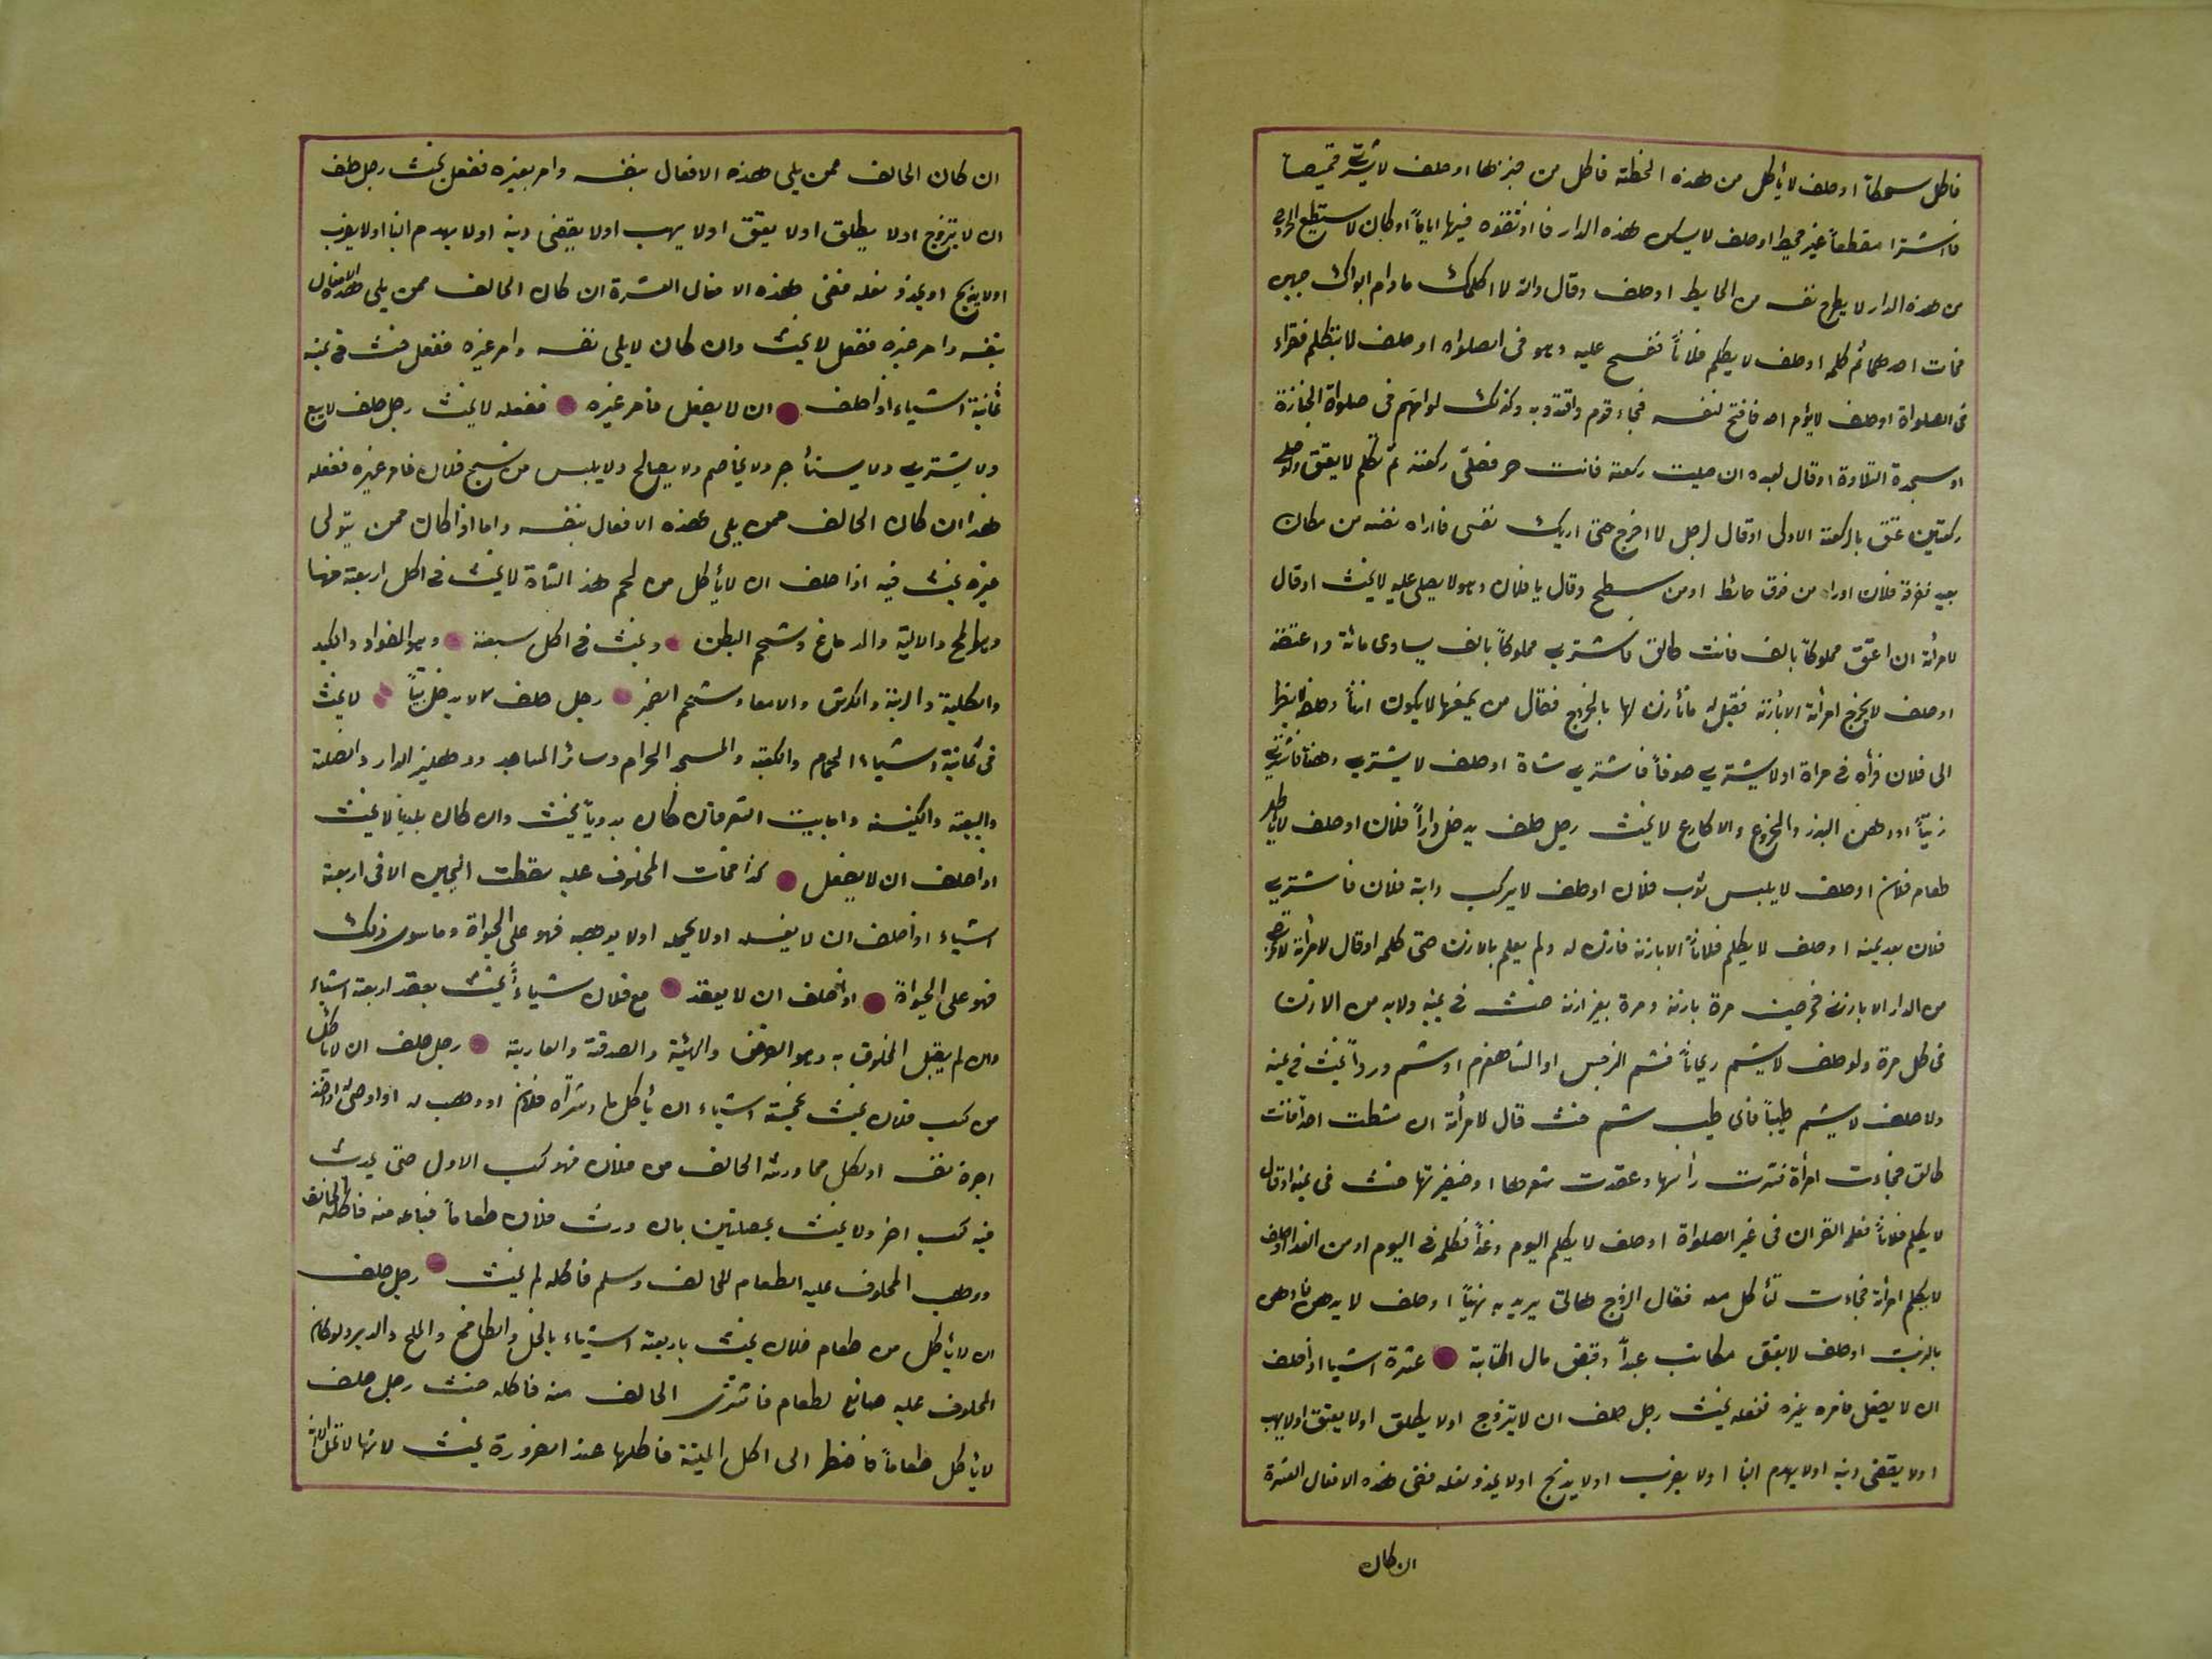 فاكل سمكا او حلف لا يأكل من هذه الحنطة فاكل من خبزها او حلف لا يشترى قميصا
فاشترا مقطعاً غير مخيط او حلف لا يسكن هذه الدار فاوثقوه فيها اياماً او كان لا يستطيع الخروج
من هذه الدار لا يطرح نفسه من الحايط او حلف وقال والله لا اكلمك مادام ابواك حيين
فمات احدهما ثم كلمه او حلف لا يكلم فلاناً فسبح عليه وهو فى الصلواة او حلف لا يتكلم فقراء
فى الصلواة او حلف لا يؤم احد فافتح لنفسه فجاء قوم واقتدوا به وكذلك لو امهم فى صلواة الجنازة
او سجدة التلاوة او قال لعبده ان صليت ركعة فانت حر فصلى ركعة ثم تكلم لا يعتق ولو صلى
ركعتين عتق بالركعة الاولى او قال لرجل لا اخرج حتى اريك نفسى فاراه نفسه من مكان
بعيد فعرفه فلان او راه من فوق حائط او من سطح وقال يا فلان وهو لا يصلى عليه لا يحنث او قال
لامرأته ان اعتق مملوكاً بالف فانت طالق فاشترى مملوكاً بالف يساوى مائة واعتقه
او حلف لا يخرج امرأته الا باذنه فقيل له فأذن لها بالخروج فقال من يمنعها لا يكون اذناً او حلف لا ينظر
الى فلان فرأه فى مراة او لا يشترى صوفاً فاشترى شاة او حلف لا يشترى دهناً فاشترى
زيتاً او دهن البذر والخروع والاكارع لا يحنث رجل حلف يدخل داراً فلان او حلف لا يأكل
طعام فلان او حلف لا يلبس ثوب فلان او حلف لا يركب دابة فلان فاشترى
فلان بعد يمينه او حلف لا يكلم فلاناً الا باذنه فاذن له ولم يعلم بالاذن حتى كلمه او قال لامرأته لا تخرجى
من الدار الا باذنى فخرجت مرة باذنه ومرة بغير اذنه حنث فى يمينه ولا بد من الاذن
فى كل مرة ولو حلف لا يشم ريحاناً فشم النرجس او الشاهفرم او شم ورداً يحنث فى يمينه
ولا حلف لا يشم طيباً فاى طيب شم حنث قال لامرأته ان مشطت احداً فانت
طالق فجاءت امرأة فنشرت رأسها وعقدت شعرها او ضفيرتها حنث فى يمينه او قال
لا يكلم فلاناً فعلمه القران فى غير الصلواة او حلف لا يكلم اليوم وغداً فكلمه فى اليوم او من الغد او حلف
لا يكلم امرأته فجاءت تأكل معه فقال الزوج هالى يريد به نهياً او حلف لا يدهن فادهن
بالزيت او حلف لا يعتق مكاتب عبداً وقبض مال الكتابة عشرة اشيا اذا حلف
ان لا يفعل فامره غيره ففعله يحنث رجل حلف ان لا يتزوج او لا يطلق او لا يعتق او لا يهب
او لا يقضى دينه او لا يهدم ابنا او لا يضرب او لا يذبح او لا يحذو نعله ففى هذه الافعال العشرة
ان كان
ان كان الحالف ممن يلى هذه الافعال بنفسه وامر بغيره ففعل يحنث رجل حلف
ان لا يتزوج او لا يطلق او لا يعتق او لا يهب او لا يقضى دينه او لا يهدم ابنا او لا يضرب
او لا يذبح او يحذو نعله ففى هذه الافعال العشرة ان كان الحالف ممن يلى هذه الافعال
بنفسه وامر غيره ففعل لا يحنث وان كان لا يلى نفسه وامر غيره ففعل حنث فى يمينه
ثمانية اشياء اذا حلف ان لا يفعل فامر غيره ففعله لا يحنث رجل حلف لا يبيع
ولا يشترى ولا يستأجر ولا يخاصم ولا يصالح ولا يلبس من نسج فلان فامر غيره ففعله
هذا ان كان الحالف ممن يلى هذه الافعال بنفسه واما اذا كان ممن يتولى
غيره يحنث فيه اذا حلف ان لا يأكل من لحم هذ الشاة لا يحنث فى اكل اربعة منها
وهو المخ والالية والدماغ وشحم البطن ويحنث فى اكل سبعة وهو الفواد والكبد
والكلية والرية والكرش والامعا وشحم الضهر رجل حلف لا يدخل بيتاً لا يحنث
فى ثمانية اشياء الحمام والكعبة والمسجد الحرام وسائر المساجد ودهليز الدار والضلة
والبيعة والكنيسة واما بيت الشعر فان كان بدوياً يحنث وان كان بلدياً لا يحنث
اذا حلف ان لا يفعل كذا فمات المحلوف عليه سقطت اليمين الا فى اربعة
اشياء اذا حلف ان لا يغسله او لا يحمله او لا يوهبه فهو على الحيواة وما سوى ذلك
فهو على الحيواة اذا حلف ان لا يعقد مع فلان شياءً يحنث بعقد اربعة اشياء
وان لم يقبل المحلوف به وهو القرض والهبة والصدقة والعارية رجل حلف ان لا يأكل
من كسب فلان يحنث بخمسة اشياء ان يأكل ما شراه فلان او وهب له او اوصى له او اخذ
اجرة نفسه او يأكل مما ورثه الحالف من فلان فهو كسب الاول حتى يحدث
فيه كسب اخر ولا يحنث بخصلتين بان ورث فلان طعاماً فباعه منه فاكله الحالف
ووهب المحلوف عليه الطعام للحالف وسلم فاكله لم يحنث رجل حلف
ان لا يأكل من طعام فلان يحنث باربعة اشياء بالخل والكامخ والملح والدبر ولو كان
المحلوف عليه صانع لطعام فاشترى الحالف منه فاكله حنث رجل حلف
لا يأكل طعاماً فاضطر الى اكل الميتة فاكلها عند الضرورة يحنث لانها لا تحل الا